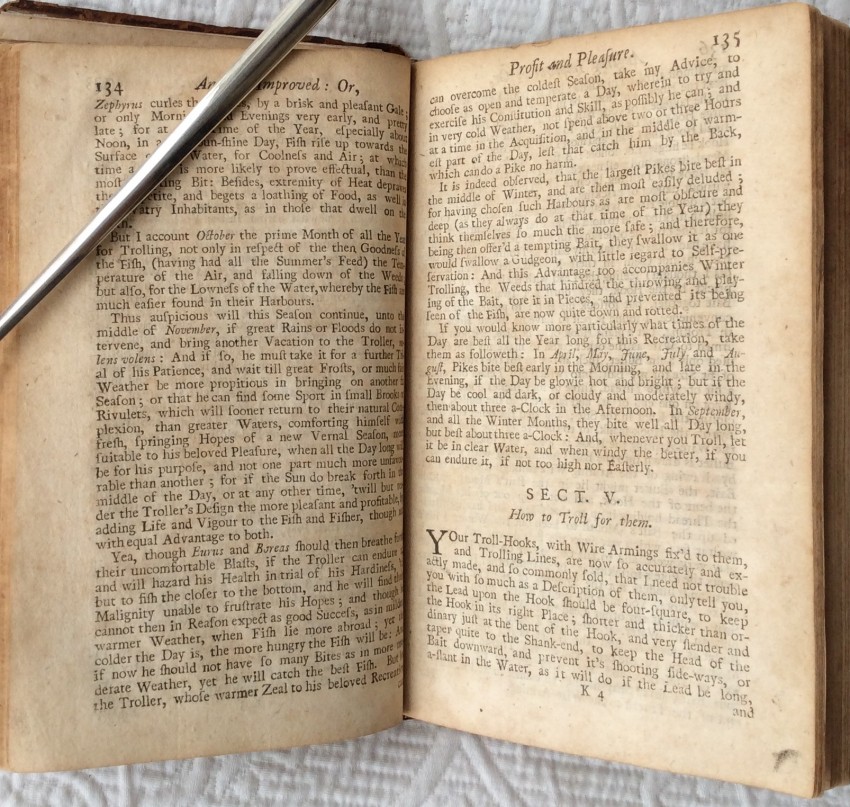 134 An improved: Or,
Zephyrus curles th by a brisk and pleasant Gale;
or only Morni Evenings very early, and pretty
late; for at me of the Year, eſpecially about
Noon, in a un-ſhine Day, Fiſh riſe up towards the
Surface Water, for Coolneſs and Air; at which
time a is more likely to prove effectual, than the
moſt ing Bit: Beſides, extremity of Heat depraves
the tite, and begets a loathing of Food, as well in
atry Inhabitants, as in thoſe that dwell on the
h.
But I account October the prime Month of all the Year
for Trolling, not only in reſpect of the then Goodneſs of
the Fiſh, (having had all the Summer's Feed) the Tem-
perature of the Air, and falling down of the Weeds
but alſo, for the Lowneſs of the Water, whereby the Fiſh are
much eaſier found in their Harbours.
Thus auſpicious will this Seaſon continue, unto the
middle of November, if great Rains or Floods do not in-
tervene, and bring another Vacation to the Troller, no-
lens volens: And if ſo, he muſt take it for a further Tri-
al of his Patience, and wait till great Froſts, or much fair
Weather be more propitious in bringing on another
Seaſon; or that he can find ſome Sport in ſmall Brooks or
Rivulets, which will ſooner return to their natural Com-
plexion, than greater Waters, comforting himſelf with
freſh, ſpringing Hopes of a new Vernal Seaſon, more
ſuitable to his beloved Pleaſure, when all the Day long will
be for his purpoſe, and not one part much more unfavou-
rable than another; for if the Sun do break forth in the
middle of the Day, or at any other time, 'twill but ren-
der the Troller's Deſign the more pleaſant and profitable, by
adding Life and Vigour to the Fiſh and Fiſher, though not
with equal Advantage to both.
Yea, though Eurus and Boreas ſhould then breathe forth
their uncomfortable Blaſts, if the Troller can endure it,
and will hazard his Health in trial of his Hardineſs,
but to fiſh the cloſer to the bottom, and he will find their
Malignity unable to fruſtrate his Hopes; and though he
cannot then in Reaſon expect as good Succeſs, as in milder
warmer Weather, when Fiſh lie more abroad; yet the
colder the Day is, the more hungry the Fiſh will be: And
if now he ſhould not have ſo many Bites as in more mo-
derate Weather, yet he will catch the beſt Fiſh. But if
the Troller, whoſe warmer Zeal to his beloved Recreation
Profit and Pleaſure. 135
can overcome the coldeſt Seaſon, take my Advice, to
chooſe as open and temperate a Day, wherein to try and
exerciſe his Conſtitution and Skill, as poſſibly he can; and
in very cold Weather, not ſpend above two or three Hours
at a time in the Acquiſition, and in the middle or warm-
eſt part of the Day, leſt that catch him by the Back,
which can do a Pike no harm.
It is indeed obſerved, that the largeſt Pikes bite beſt in
the middle of Winter, and are then moſt eaſily deluded;
for having choſen ſuch Harbours as are moſt obſcure and
deep (as they always do at that time of the Year) they
think themſelves ſo much the more ſafe; and therefore,
being then offer'd a tempting Bait, they ſwallow it as one
would ſwallow a Gudgeon, with little regard to Self-pre-
ſervation: And this Advantage too accompanies Winter
Trolling, the Weeds that hindred the throwing and play-
ing of the Bait, tore it in Pieces, and prevented its being
ſeen of the Fiſh, are now quite down and rotted.
If you would know more particularly what times of the
Day are beſt all the Year long for this Recreation, take
them as followeth: In April, May, June, July and Au-
guſt, Pikes bite beſt early in the Morning, and late in the
Evening, if the Day be glowie hot and bright; but if the
Day be cool and dark, or cloudy and moderately windy,
then about three a-Clock in the Afternoon. In September,
and all the Winter Months, they bite well all Day long,
but beſt about three a-Clock: And, whenever you Troll, let
it be in clear Water, and when windy the better, if you
can endure it, if not too high nor Eaſterly.
SECT. V.
How to Troll for them.
YOur Troll-Hooks, with Wire Armings fix'd to them,
and Trolling Lines, are now ſo accurately and ex-
actly made, and ſo commonly ſold, that I need not trouble
you with ſo much as a Deſcription of them, only tell you,
the Lead upon the Hook ſhould be four-ſquare, to keep
the Hook in its right Place; ſhorter and thicker than or-
dinary juſt at the bent of the Hook, and very ſlender and
taper quite to the Shank-end, to keep the Head of the
Bait downward, and prevent it's ſhooting ſide-ways, or
a-ſlant in the Water, as it will do if the Lead be long,
K 4 and